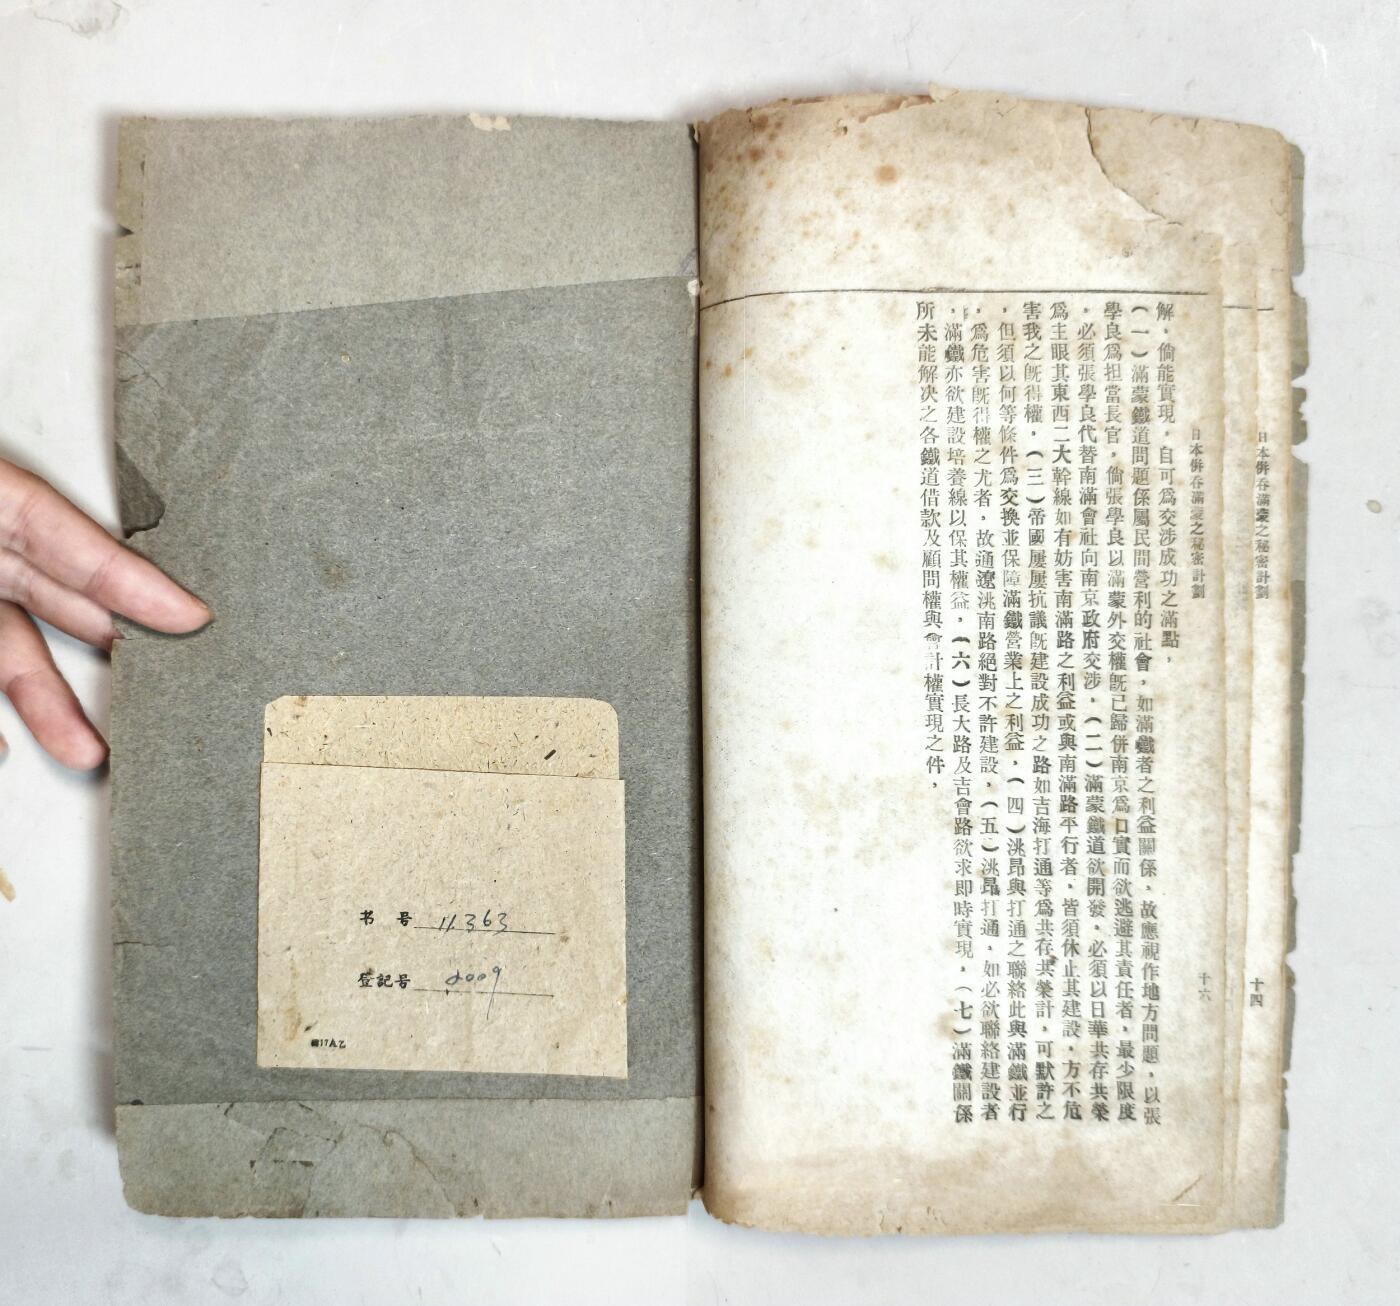 日本併吞滿蒙之秘密計劃
十四
日本併吞滿蒙之秘密計劃
十六
解，倘能實現，自可爲交涉成功之滿點，
（一）滿蒙鐵道問題係屬民間營利的社會，如滿鐵者之利益關係，故應視作地方問題，以張
學良爲担當長官，倘張學良以滿蒙外交權既已歸併南京爲口實而欲逃避其責任者，最少限度
，必須張學良代替南滿會社向南京政府交涉，（二）滿蒙鐵道欲開發，必須以日華共存共榮
爲主眼其東西二大幹線如有妨害南滿路之利益或與南滿路平行者，皆須休止其建設，方不危
害我之既得權，（三）帝國屢屢抗議既建設成功之路如吉海打通等爲共存共榮計，可默許之
，但須以何等條件爲交換並保障滿鐵營業上之利益，（四）洮昂與打通之聯絡此與滿鐵並行
，爲危害既得權之尤者，故通遼洮南路絕對不許建設，（五）洮昂打通，如必欲聯絡建設者
，滿鐵亦欲建設培養線以保其權益，（六）長大路及吉會路欲求即時實現，（七）滿鐵關係
所未能解決之各鐵道借款及顧問權與會計權實現之件，
书 号 11363
登記号 2009